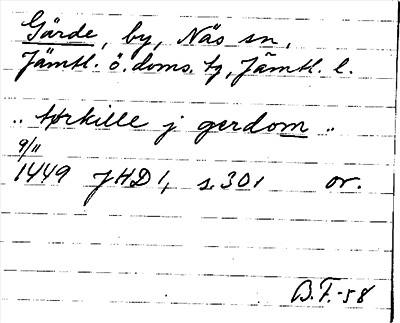 Gärde, by, Näs sn,
Jämtl. ö. doms. tg, Jämtl. l.
„ tørkille j gerdom „
9/11
1449 JHD 1, s. 301 or.
B.F.-58